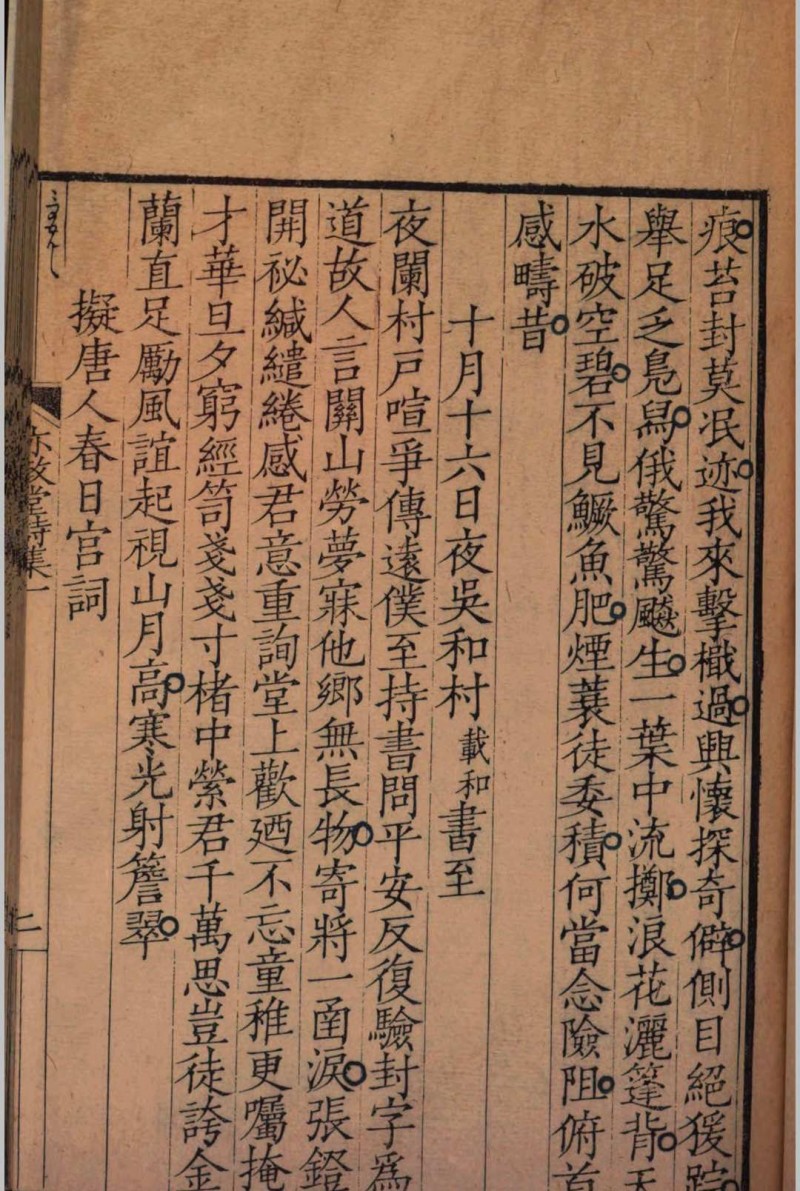 痕苔封莫泯迹我來擊檝過興懷探奇僻側目絕猨踪
舉足乏鳧舄俄驚驚飈生一葉中流擲浪花灑篷背天
水破空碧不見鱖魚肥煙蓑徒委積何當念險阻俯首
感疇昔
十月十六日夜吳和村載和書至
夜闌村戶喧爭傳遠僕至持書問平安反復驗封字為
道故人言關山勞夢寐他鄉無長物寄將一函淚張鐙
開祕緘繾綣感君意重詢堂上歡迺不忘童稚更囑掩
才華旦夕窮經笥戔戔寸楮中縈君千萬思豈徒誇金
蘭直足勵風誼起視山月高寒光射簷翠
擬唐人春日宮詞
亦政堂詩集一
二